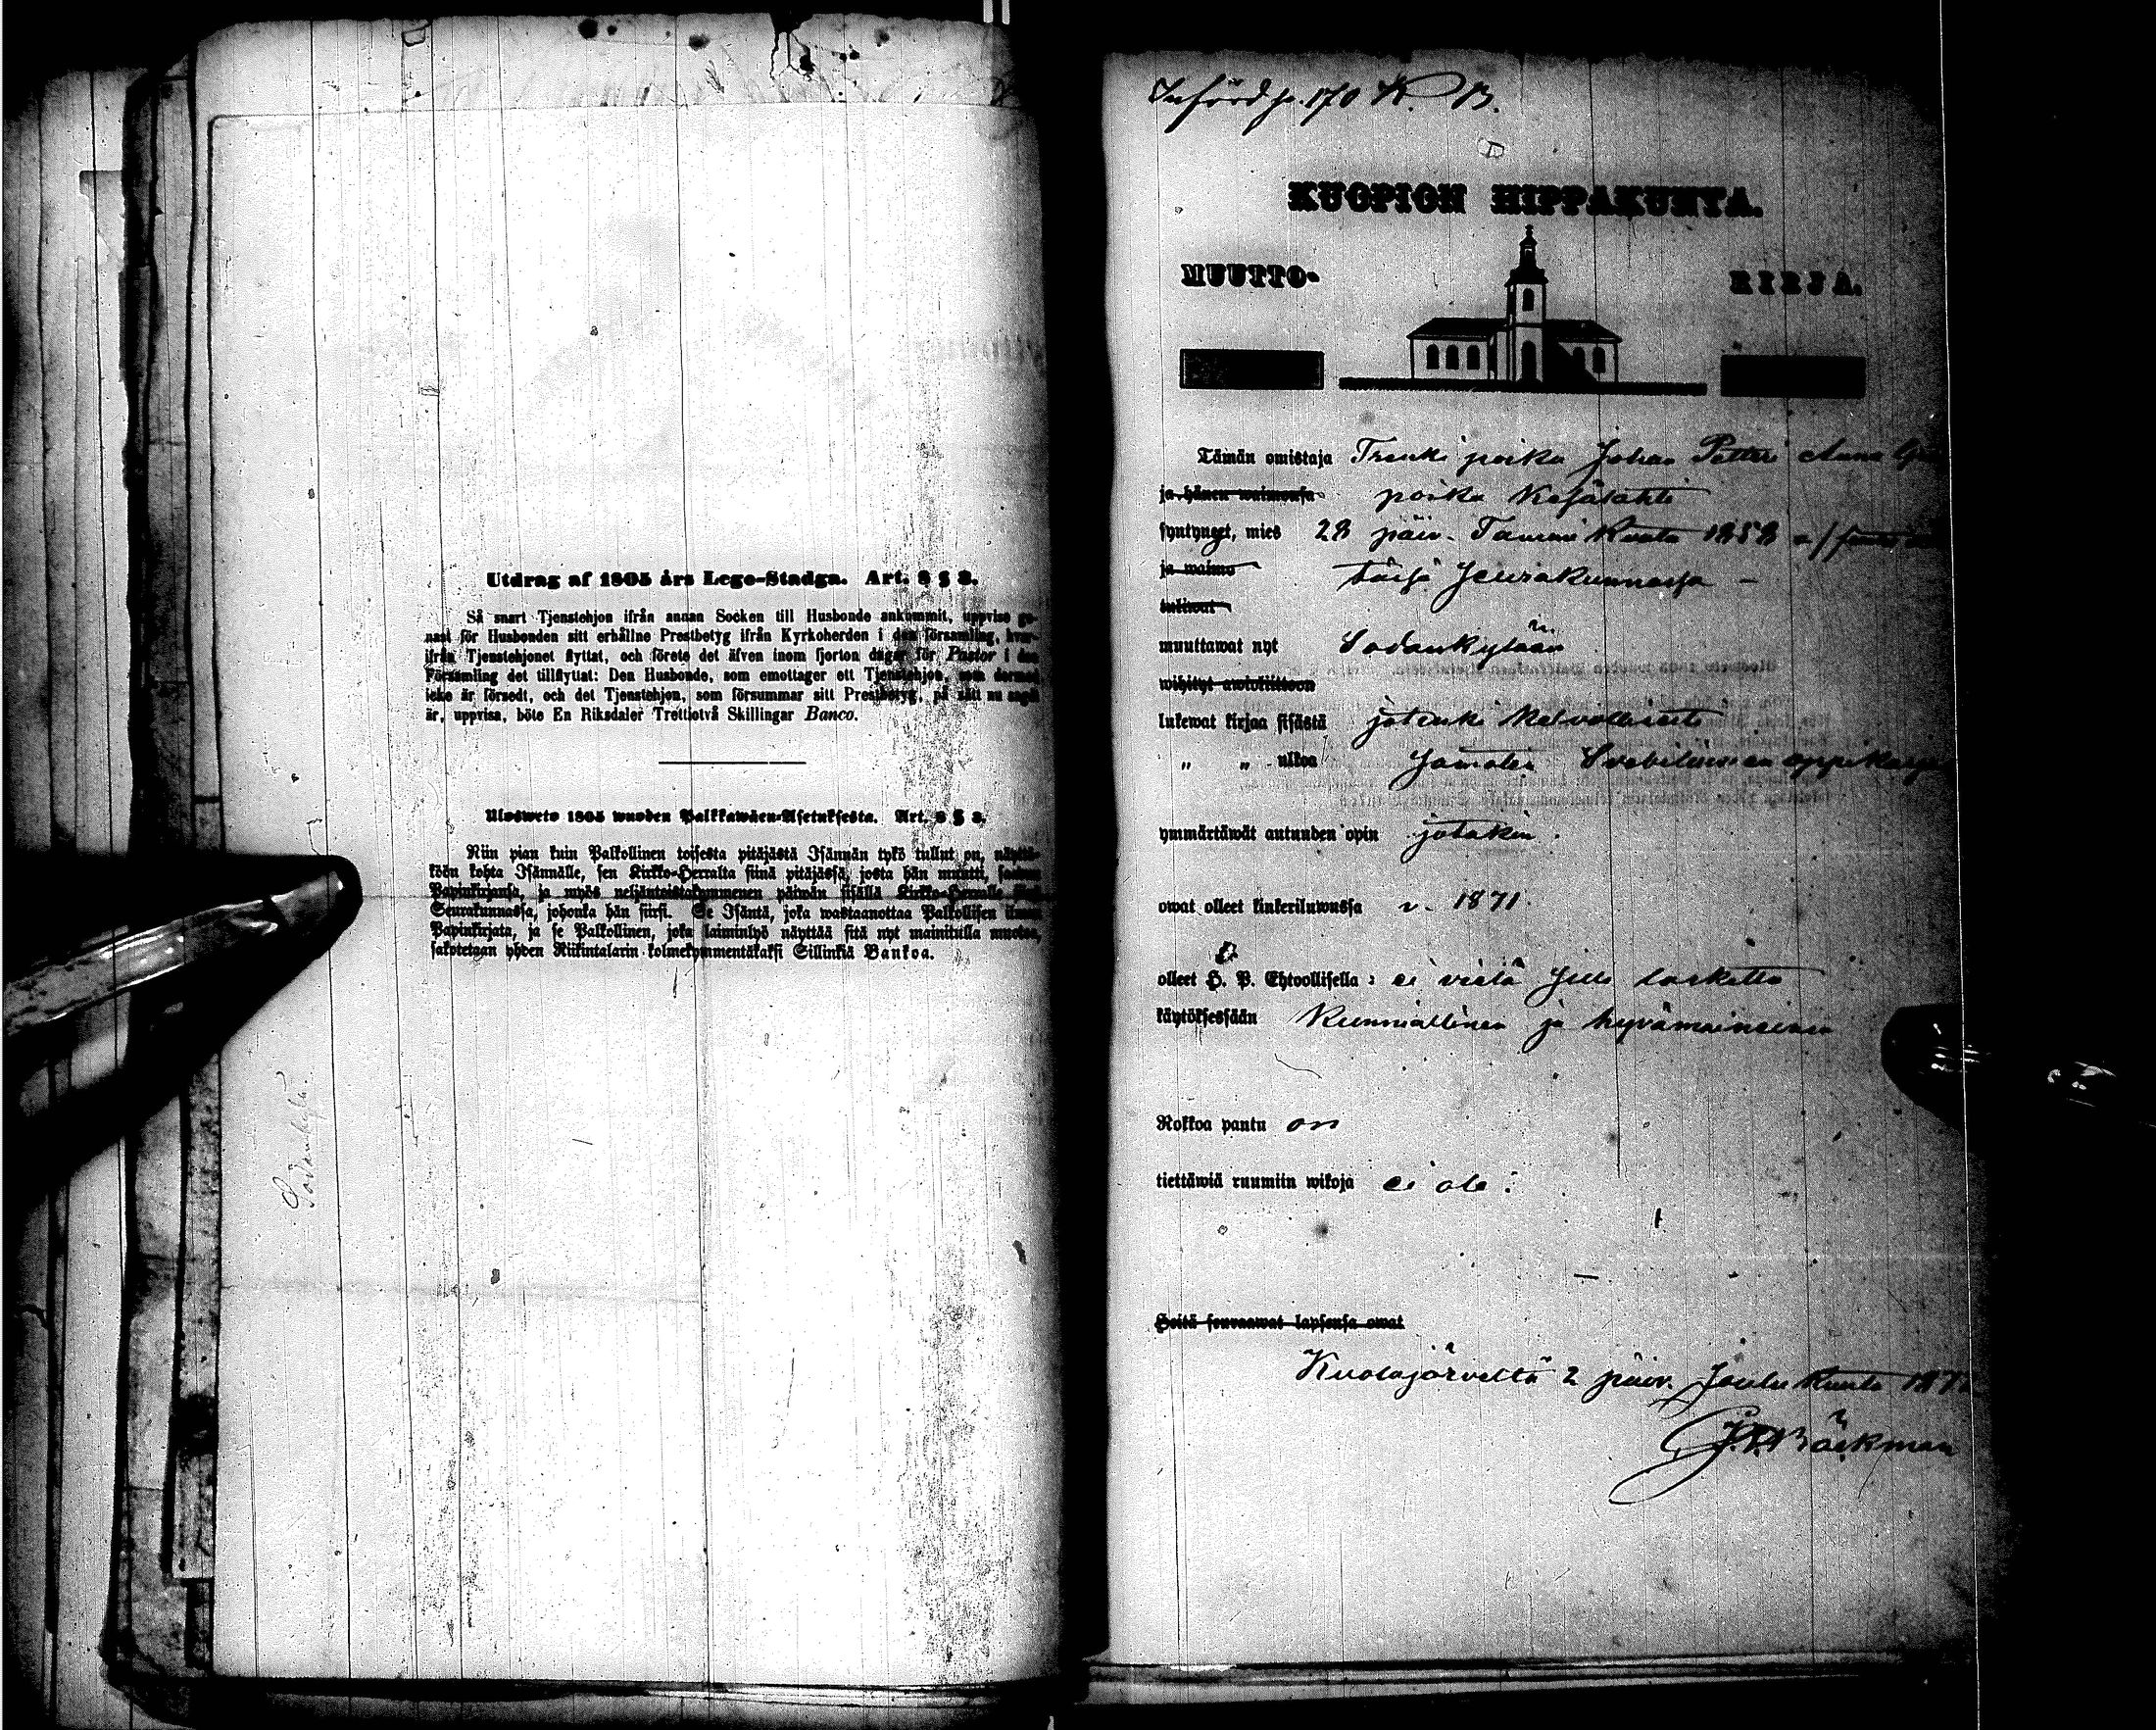 Utdrag af 1805 års Lego-Stadga. Art. 8 § 3.
Så snart Tjenstehjon ifrån annan Socken till Husbonde ankommit, uppvise ge-
nast för Husbonden sitt erhållne Prestbetyg ifrån Kyrkoherden i den församling, hvar-
ifrån Tjenstehjonet flyttat, och förete det äfven inom fjorton dagar för Pastor i den
Församling det tillflyttat: Den Husbonde, som emottager ett Tjenstehjon, som dermed
icke är försedt, och det Tjenstehjon, som försummar sitt Prestbetyg, på sätt nu sagdt
är, uppvisa, böte En Riksdaler Trettiotvå Skillingar Banco.
Ulosweto 1805 wuoden Palkkawäen-Asetuksesta. Art. 8 § 3.
Niin pian kuin Palkollinen toisesta pitäjästä Isännän tykö tullut on, näyttä-
köön kohta Isännälle, sen Kirkko-Herralta siinä pitäjässä, josta hän muutti, saadun
Papinkirjansa, ja myös neljäntoistakymmenen päiwän sisällä Kirkko-Herralle
Seurakunnassa, johonka hän siirsi. Se Isäntä, joka wastaanottaa Palkollisen ilman
Papinkirjata, ja se Palkollinen, joka laiminlyö näyttää sitä nyt mainitulla muotoa,
sakotetaan yhden Riikintalarin kolmekymmentäkaksi Sillinkiä Bankoa.
Sodankylä
Införd p. 170 K. B.
KUOPION HIPPAKUNTA.
MUUTTO- KIRJA.
Tämän omistaja Trenki poika Johan Petteri Anna
ja hänen waimonsa poika Kesälahti
syntynyt, mies 28 päiv. Tammi Kuuta 1858
ja waimo tässä Seurakunnassa -
tuliwat
muuttawat nyt Sodankylään
wihityt awioliittoon
lukewat kirjaa sisästä jotenki kelvollisesti
„ „ ulkoa Samoten Svebiliuksen
ymmärtäwät autuuden opin jotakin.
owat olleet kinkeriluwussa v. 1871
olleet H. P. Ehtoollisella: ei vielä sille laskettu
käytöksessään Kunniallinen ja hyvämaineinen
Rokkoa pantu on
tiettäwiä ruumiin wikoja ei ole.
Heitä seuraawat lapsensa owat
Kuolajärveltä 2 päiv. Joulu Kuuta
Bäckman